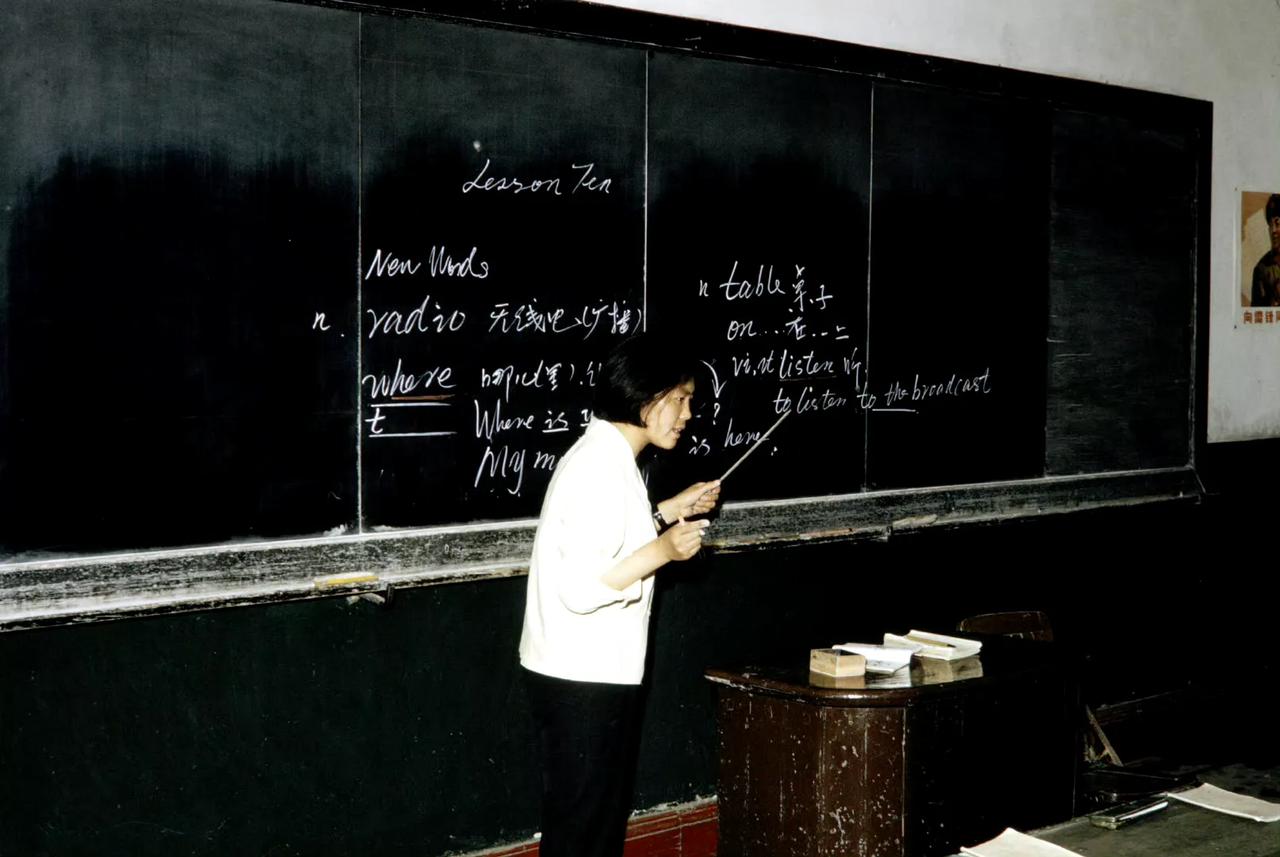 Lesson Ten
New Words
n. radio 无线电(广播)
where 哪儿(里).
t
Where is ?
My is here.
n table 桌子
on...在...上
vi.vt listen 听
to listen to the broadcast
向雷锋同